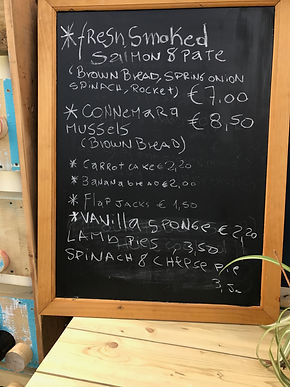 *fresh smoked
Salmon & Pate
(Brown Bread, Spring onion
Spinach, Rocket) €7,00
*Connemara €8,50
Mussels
(Brown Bread)
*Carrot cake €2,20
*Banana bread €2,00
*Flap Jacks €1,50
*Vanilla Sponge €2,20
Lamb pies 3,50
Spinach & Cheese pie